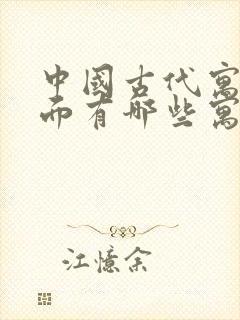 中國古代寓
而有哪些寓
江憶余